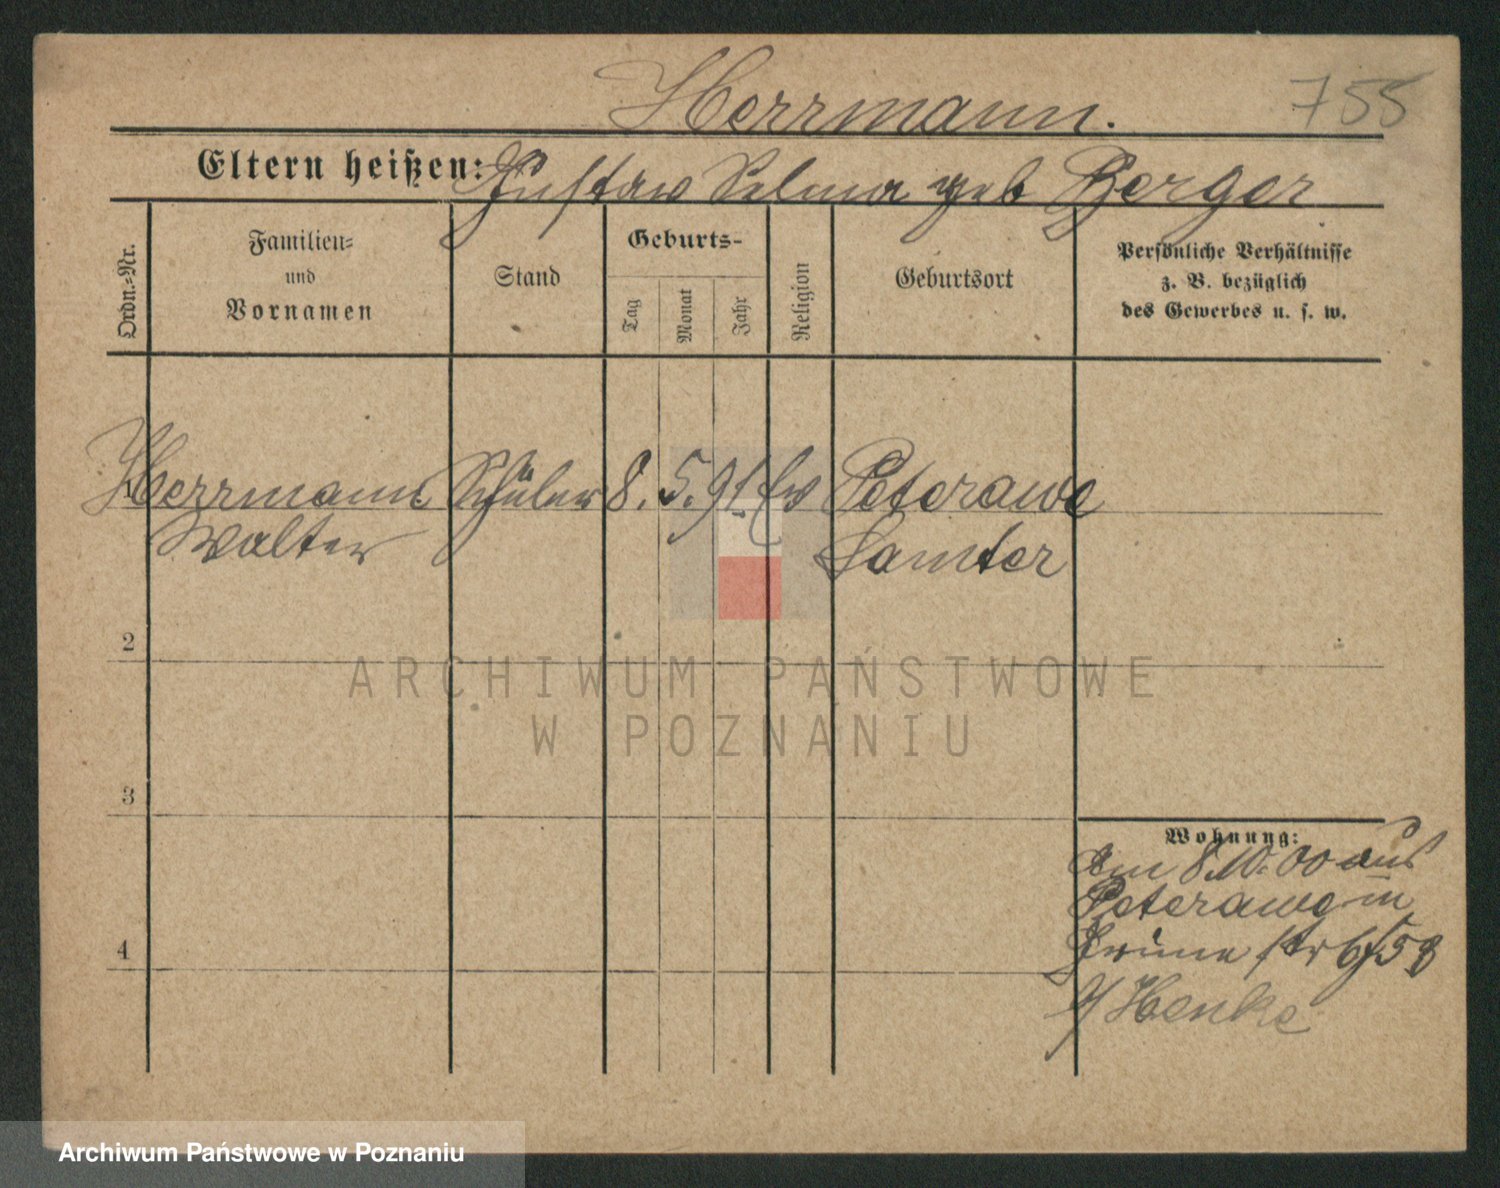 Herrmann.
755
Eltern heißen: Gustav Selma geb Berger
Ordn.=Nr.
Familien=
und
Vornamen
Stand
Geburts-
Tag
Monat
Jahr
Religion
Geburtsort
Persönliche Verhältnisse
z. B. bezüglich
des Gewerbes u. s. w.
Herrmann Schüler 8. 5. 91. Ev Peterawe
Walter Samter
2
ARCHIWUM PAŃSTWOWE
W POZNANIU
3
Wohnung:
am 8.10.00 aus
Peterawe in
4
Grüne str
b/ Henke
Archiwum Państwowe w Poznaniu